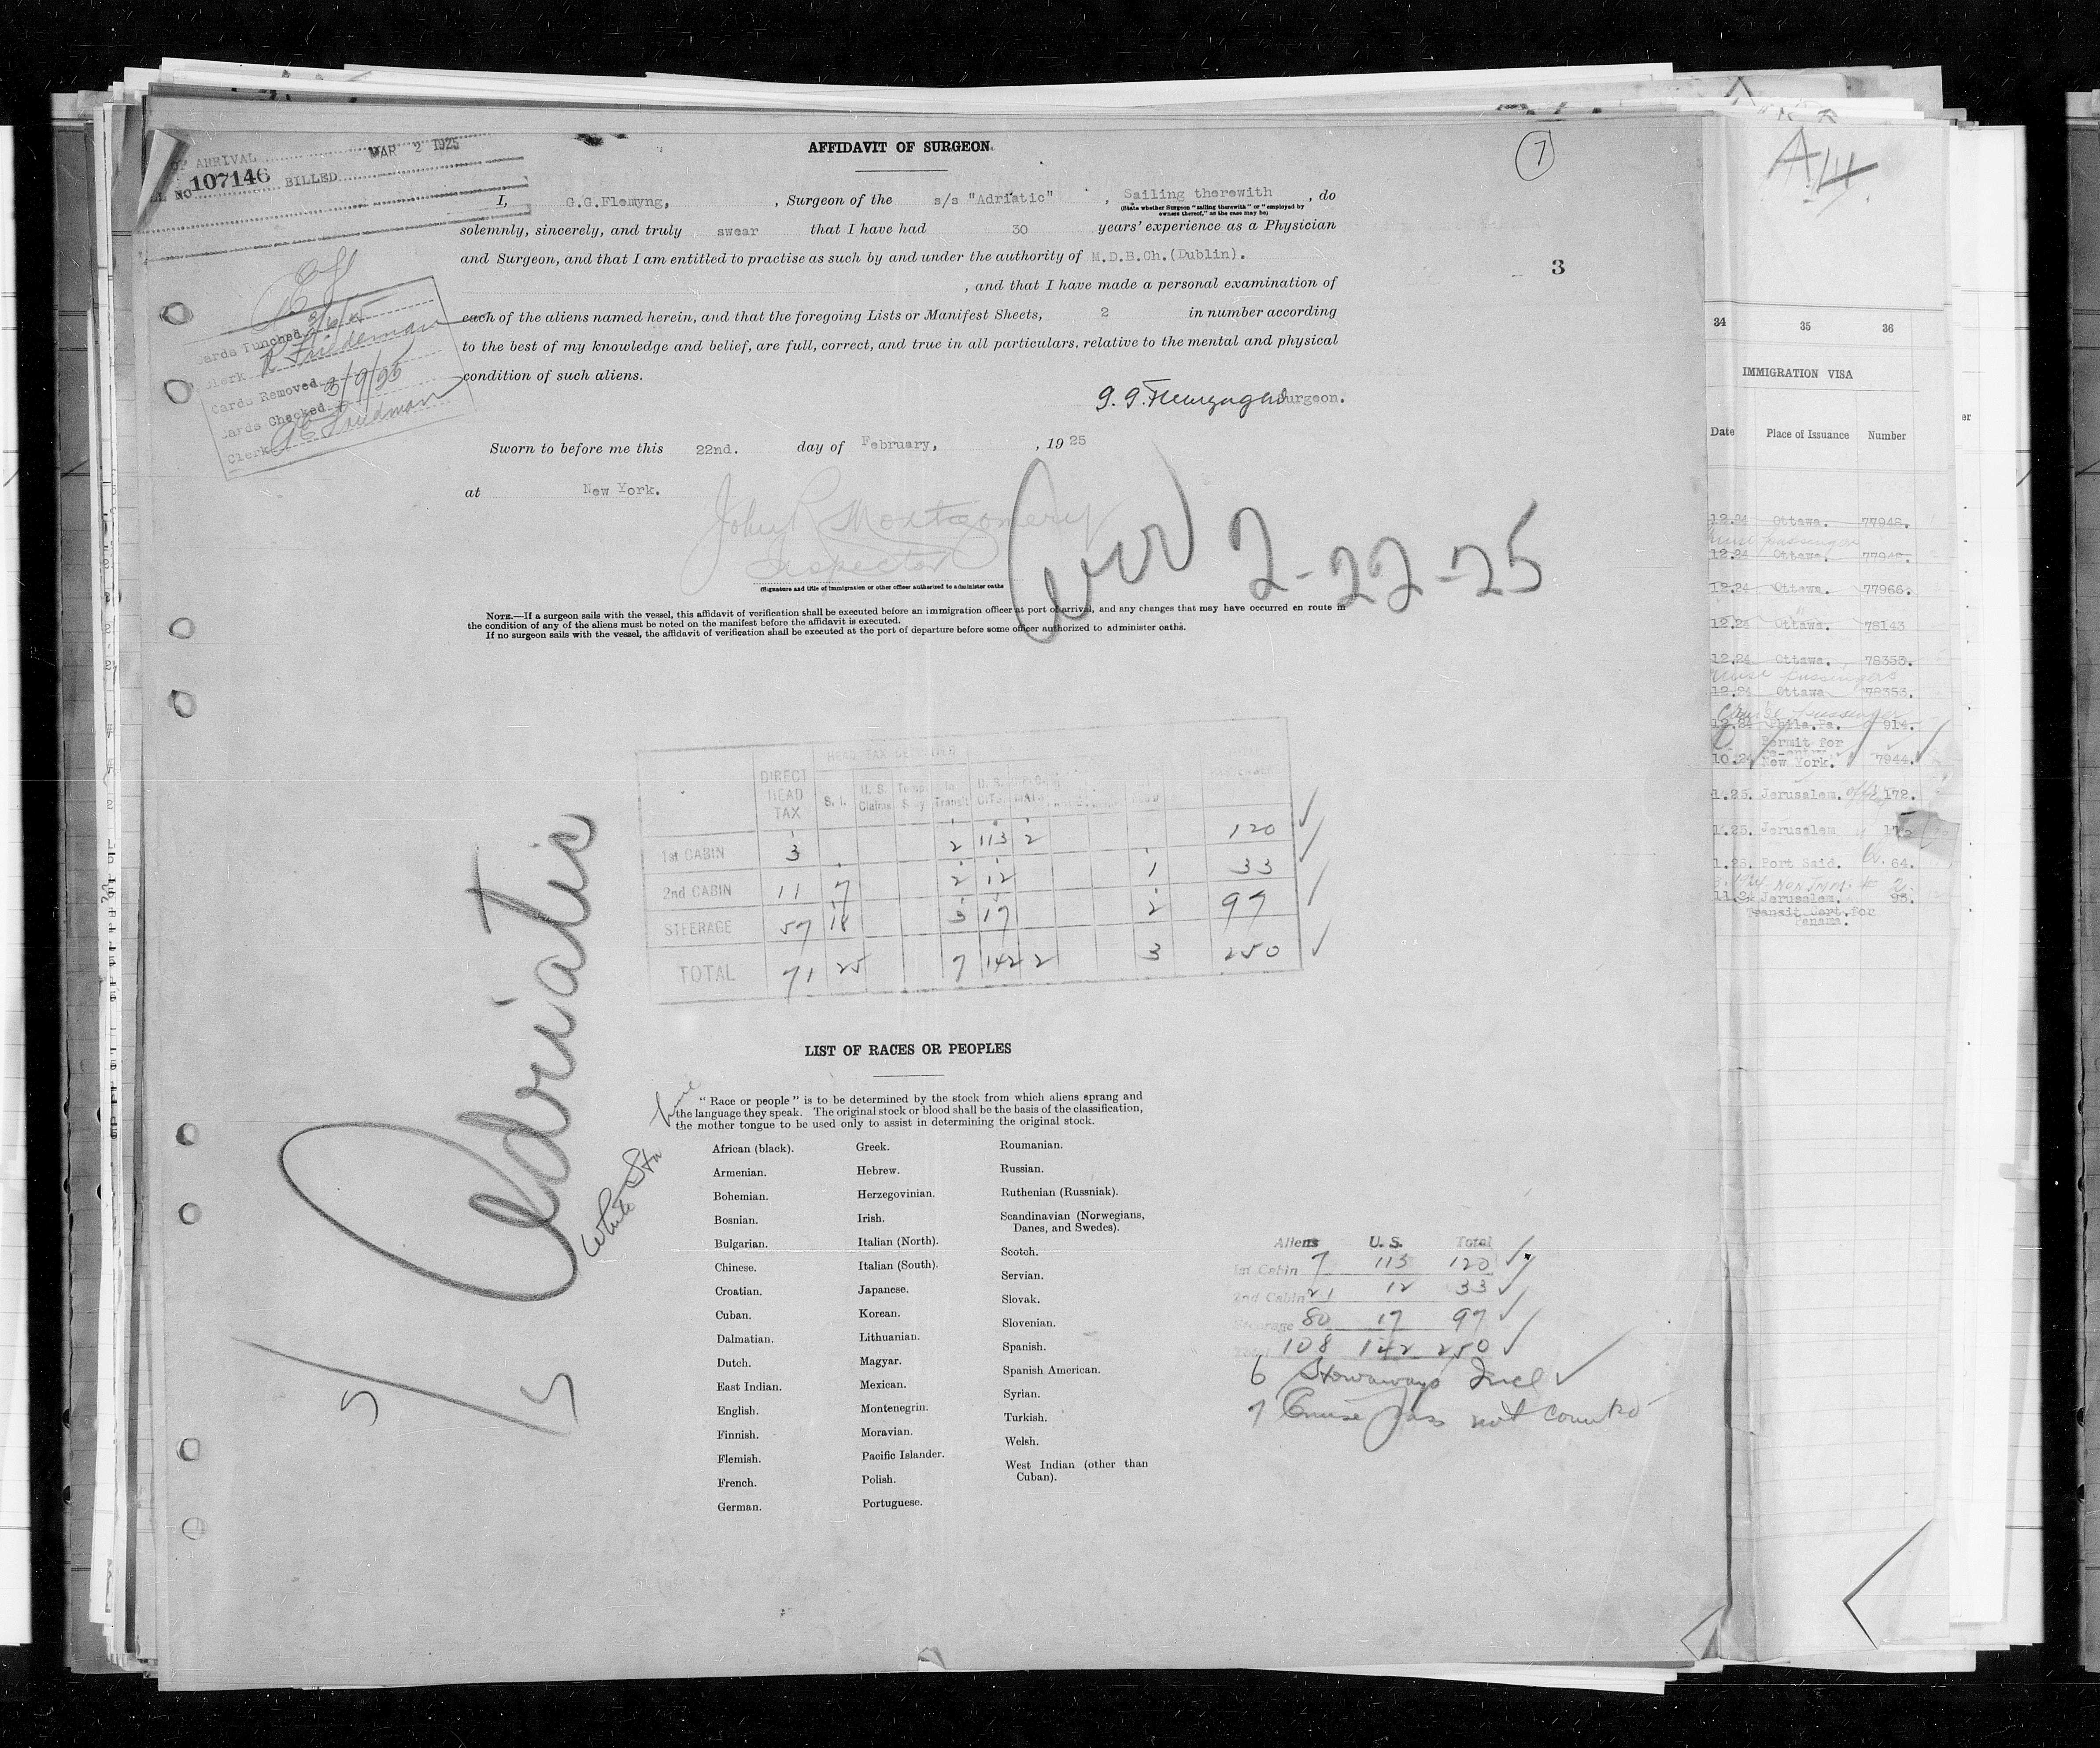 OF ARRIVAL MAR 2 1925
NO 107146 BILLED
AFFIDAVIT OF SURGEON.
7
I, G.G.Flemyng, , Surgeon of the s/s "Adriatic" , Sailing therewith , do
(State whether Surgeon "sailing therewith" or "employed by
owners thereof," as the case may be)
solemnly, sincerely, and truly swear that I have had 30 years' experience as a Physician
and Surgeon, and that I am entitled to practise as such by and under the authority of M.D.B.Ch.(Dublin).
, and that I have made a personal examination of
3
each of the aliens named herein, and that the foregoing Lists or Manifest Sheets, 2 in number according
to the best of my knowledge and belief, are full, correct, and true in all particulars, relative to the mental and physical
condition of such aliens.
Surgeon.
Cards Punched
Clerk Friedeman
Cards Removed 3/9/25
Cards Checked
Clerk Friedman
Sworn to before me this 22nd. day of February, , 19 25
at New York.
John Montgomery
Inspector
(Signature and title of immigration or other officer authorized to administer oaths
2-22-25
NOTE.—If a surgeon sails with the vessel, this affidavit of verification shall be executed before an immigration officer at port of arrival, and any changes that may have occurred en route in
the condition of any of the aliens must be noted on the manifest before the affidavit is executed.
If no surgeon sails with the vessel, the affidavit of verification shall be executed at the port of departure before some officer authorized to administer oaths.
HEAD TAX
DIRECT HEAD TAX S. I. U. S. Claims Temp. Stay In Transit U. S.
1st CABIN 3 2 113 2 120
2nd CABIN 11 7 2 12 1 33
STEERAGE 57 18 3 17 2 97
TOTAL 71 25 7 142 2 3 250
Adriatic
White Star Line
LIST OF RACES OR PEOPLES
"Race or people" is to be determined by the stock from which aliens sprang and
the language they speak. The original stock or blood shall be the basis of the classification,
the mother tongue to be used only to assist in determining the original stock.
African (black).
Armenian.
Bohemian.
Bosnian.
Bulgarian.
Chinese.
Croatian.
Cuban.
Dalmatian.
Dutch.
East Indian.
English.
Finnish.
Flemish.
French.
German.
Greek.
Hebrew.
Herzegovinian.
Irish.
Italian (North).
Italian (South).
Japanese.
Korean.
Lithuanian.
Magyar.
Mexican.
Montenegrin.
Moravian.
Pacific Islander.
Polish.
Portuguese.
Roumanian.
Russian.
Ruthenian (Russniak).
Scandinavian (Norwegians,
Danes, and Swedes).
Scotch.
Servian.
Slovak.
Slovenian.
Spanish.
Spanish American.
Syrian.
Turkish.
Welsh.
West Indian (other than
Cuban).
Aliens U. S. Total
1st Cabin 7 113 120
2nd Cabin 21 12 33
Steerage 80 17 97
Total 108 142 250
6 Stowaways Incl
7 Cruise pass not counted
34 35 36
IMMIGRATION VISA
Date Place of Issuance Number
12.24 Ottawa. 77948.
12.24 Ottawa.
12.24 Ottawa. 77966.
12.24 Ottawa. 78143
12.24 Ottawa. 78353.
cruise passengers
12.24 Ottawa 78353.
Cruise Passenger
Phila.Pa. 914.
Permit for
re-entry
10.24 New York. 7944.
1.25. Jerusalem. 172.
1.25. Jerusalem
1.25. Port Said. 64.
11.24 Jerusalem. 93.
Transit Cert.for
Panama.